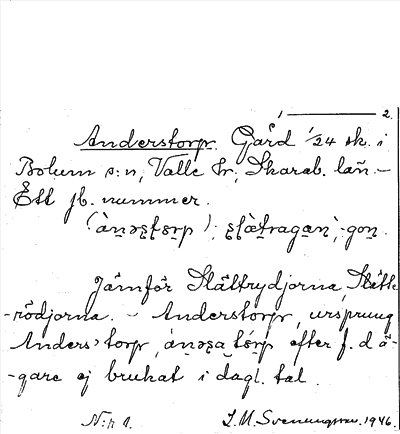 1 ——— 2.
Anderstorp. Gård 1/24 sk. i
Bolum s:n, Valle hr, Skarab. län.-
Ett jb. nummer.
Jämför Slättrydjorna, Slätt-
-rödjorna. - Anderstorp, ursprung
Anders' torp, efter f.d ä-
-gare ej brukat i dagl. tal.
N:r 1. L. M. Svenungsson. 1946.